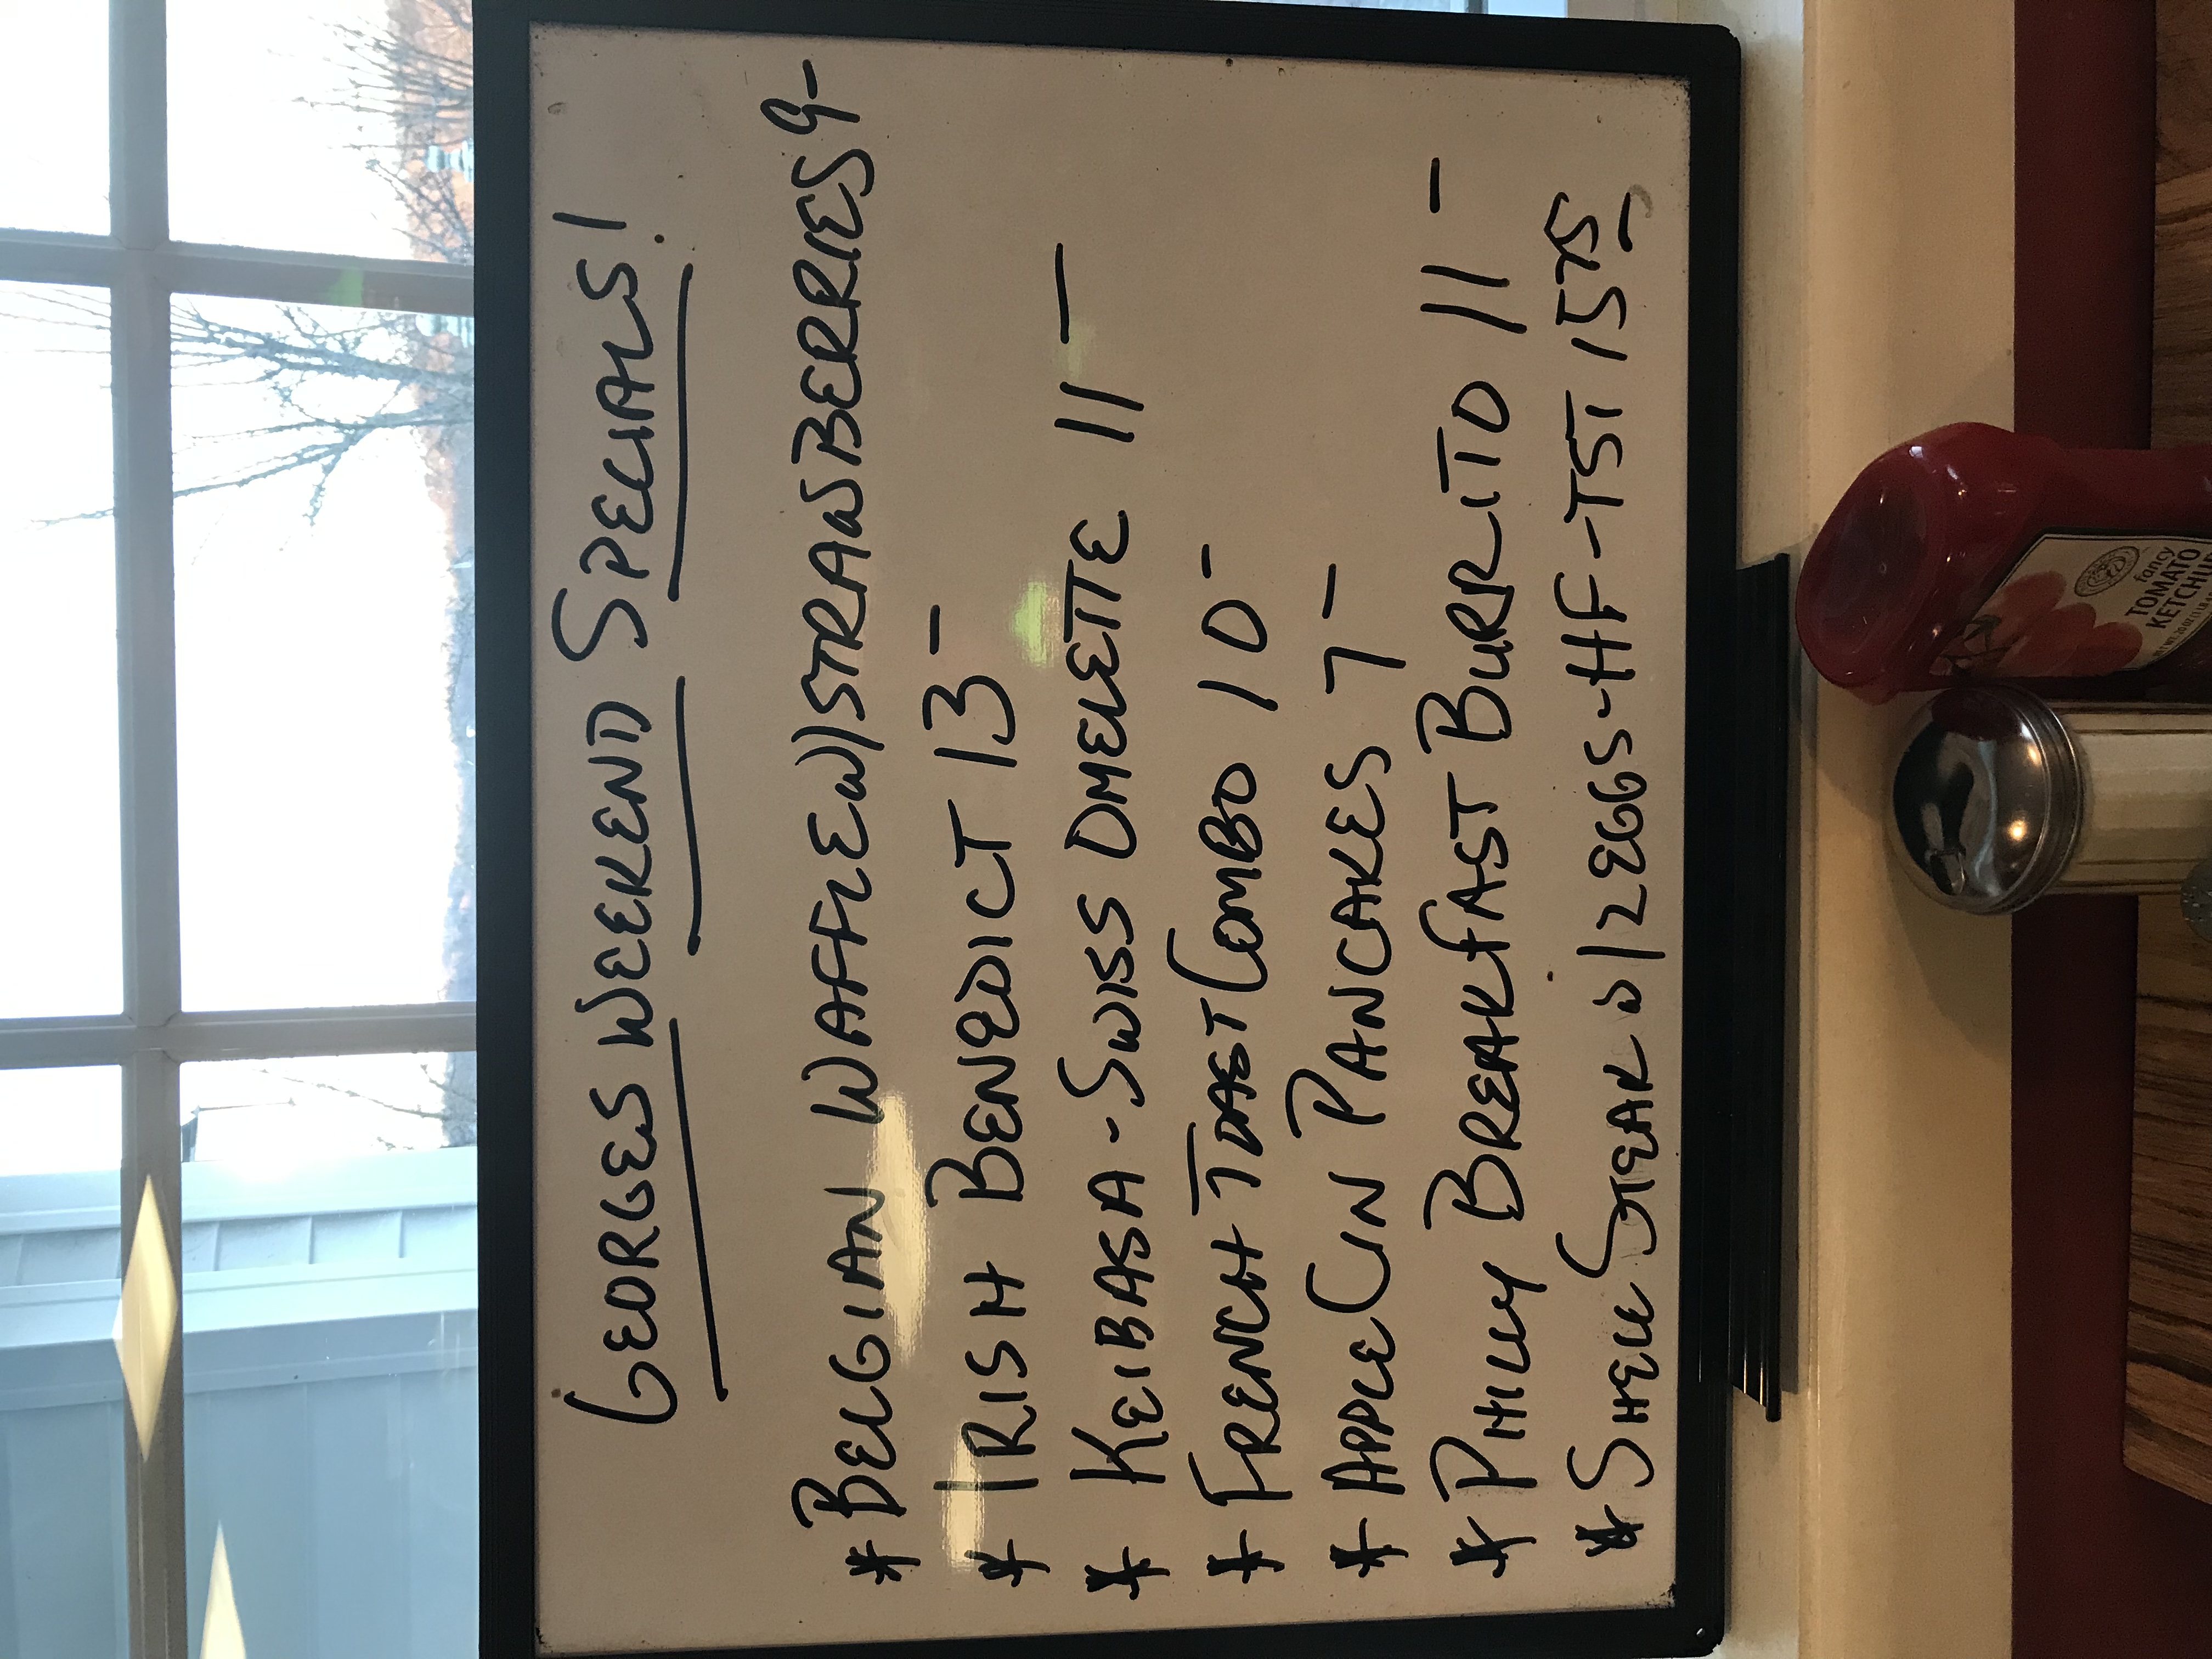 GEORGES WEEKEND SPECIALS!
* BELGIAN WAFFLE W/STRAWBERRIES 9-
* IRISH BENEDICT 13-
* KEIBASA-SWISS OMELETTE 11-
* FRENCH TOAST COMBO 10-
* APPLE CIN PANCAKES 7-
* PHILLY BREAKFAST BURRITO 11-
* SHELL STEAK W/2EGGS-HF-TST 1575
fancy
TOMATO
KETCHUP